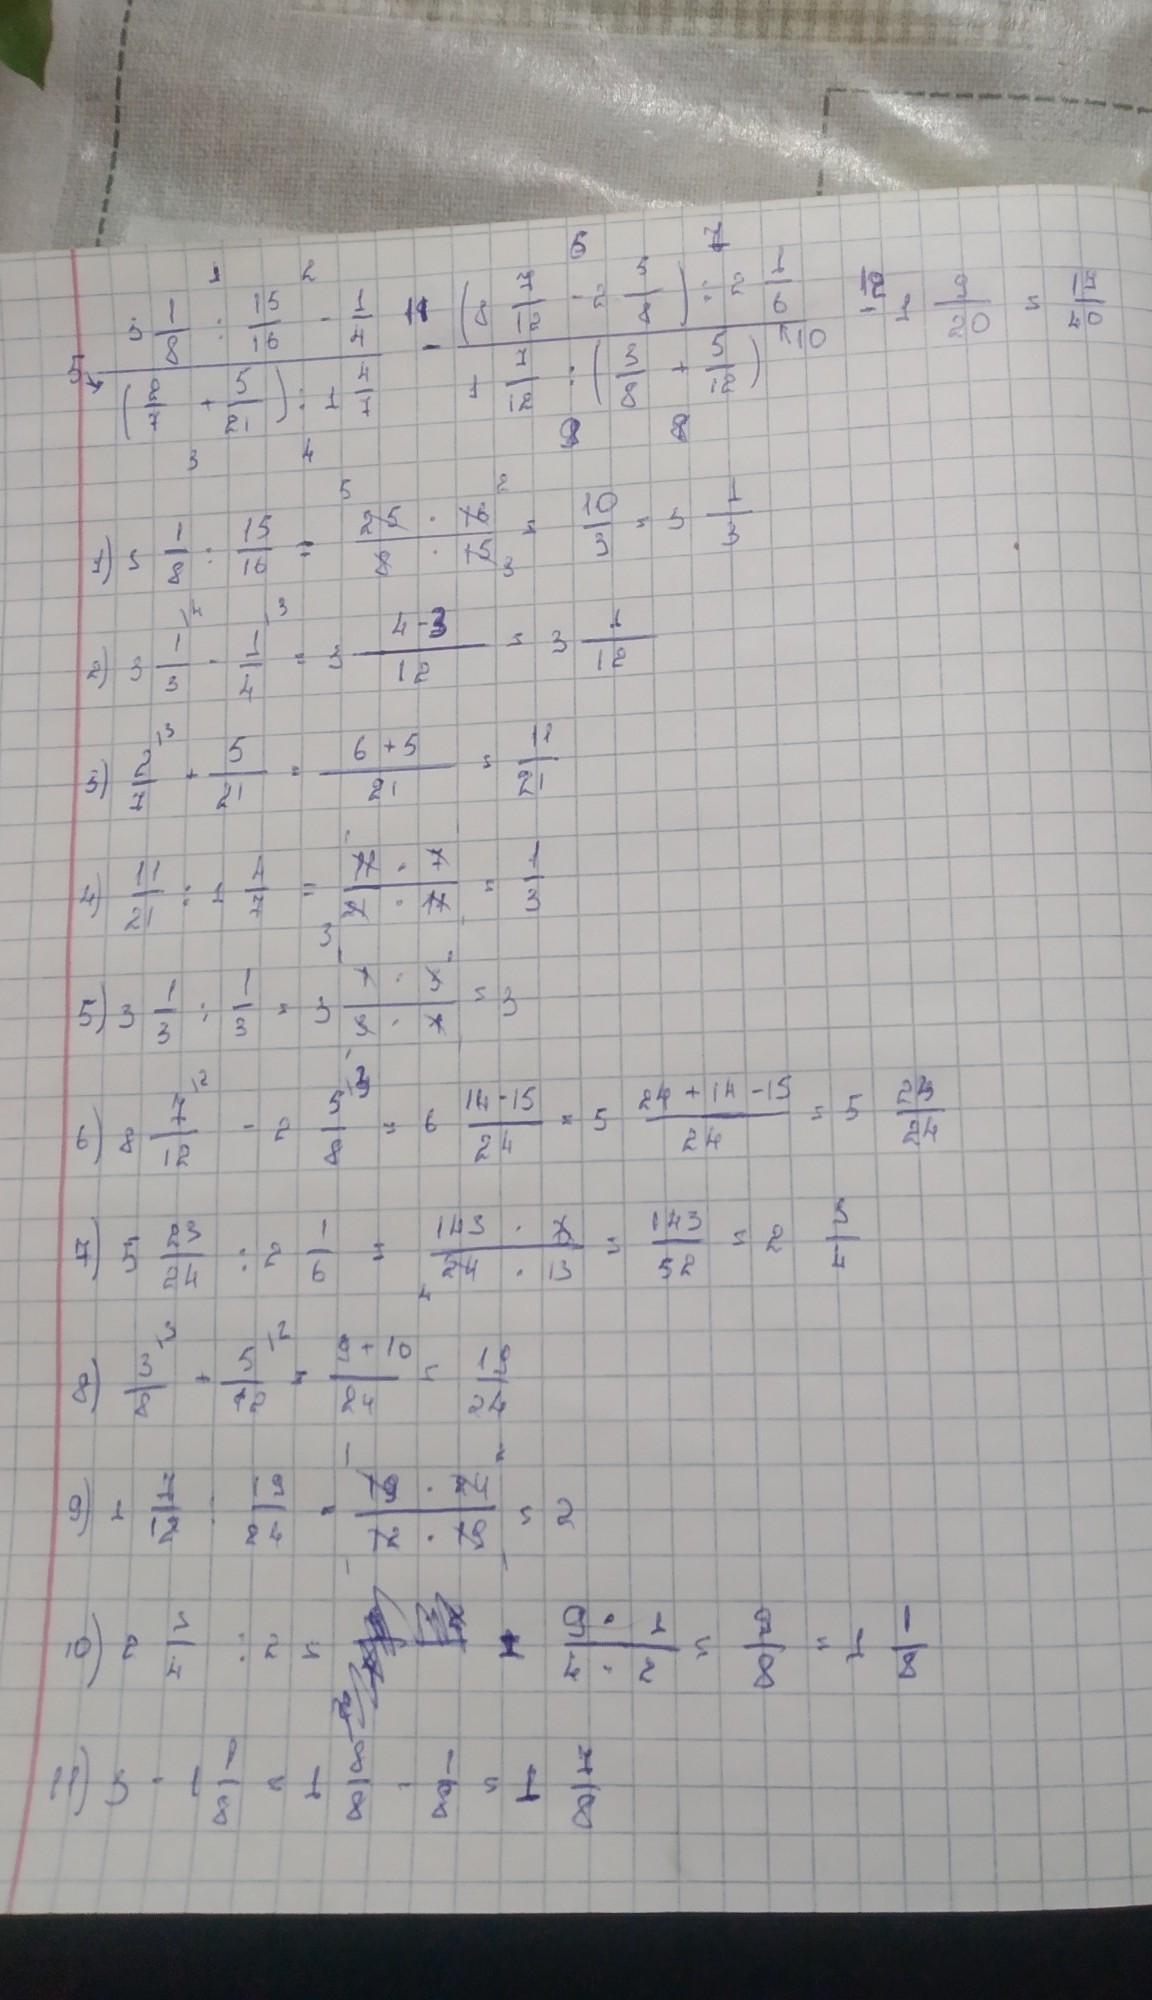 1 2 6 7
3 1/8 : 15/16 - 1/4 11 (8 7/12 - 2 5/8) : 2 1/6 12 - 1 9/20 = 17/40
5 - 10
(2/7 + 5/21) : 1 4/7 1 7/12 : (3/8 + 5/12)
3 4 9 8
1) 3 1/8 : 15/16 = 25 · 16 / 8 · 15 = 10/3 = 3 1/3
2) 3 1/3 - 1/4 = 3 4-3/12 = 3 1/12
3) 2/7 + 5/21 = 6+5/21 = 11/21
4) 11/21 : 1 4/7 = 11 · 7 / 21 · 11 = 1/3
5) 3 1/3 : 1/3 = 3 1 · 3 / 3 · 1 = 3
6) 8 7/12 - 2 5/8 = 6 14-15/24 = 5 24+14-15/24 = 5 23/24
7) 5 23/24 : 2 1/6 = 143 · 6 / 24 · 13 = 143/52 = 2 3/4
8) 3/8 + 5/12 = 9+10/24 = 19/24
9) 1 7/12 : 19/24 = 19 · 24 / 12 · 19 = 2
10) 2 3/4 : 2 = 9 · 1 / 4 · 2 = 9/8 = 1 1/8
11) 3 - 1 1/8 = 1 8/8 - 1/8 = 1 7/8